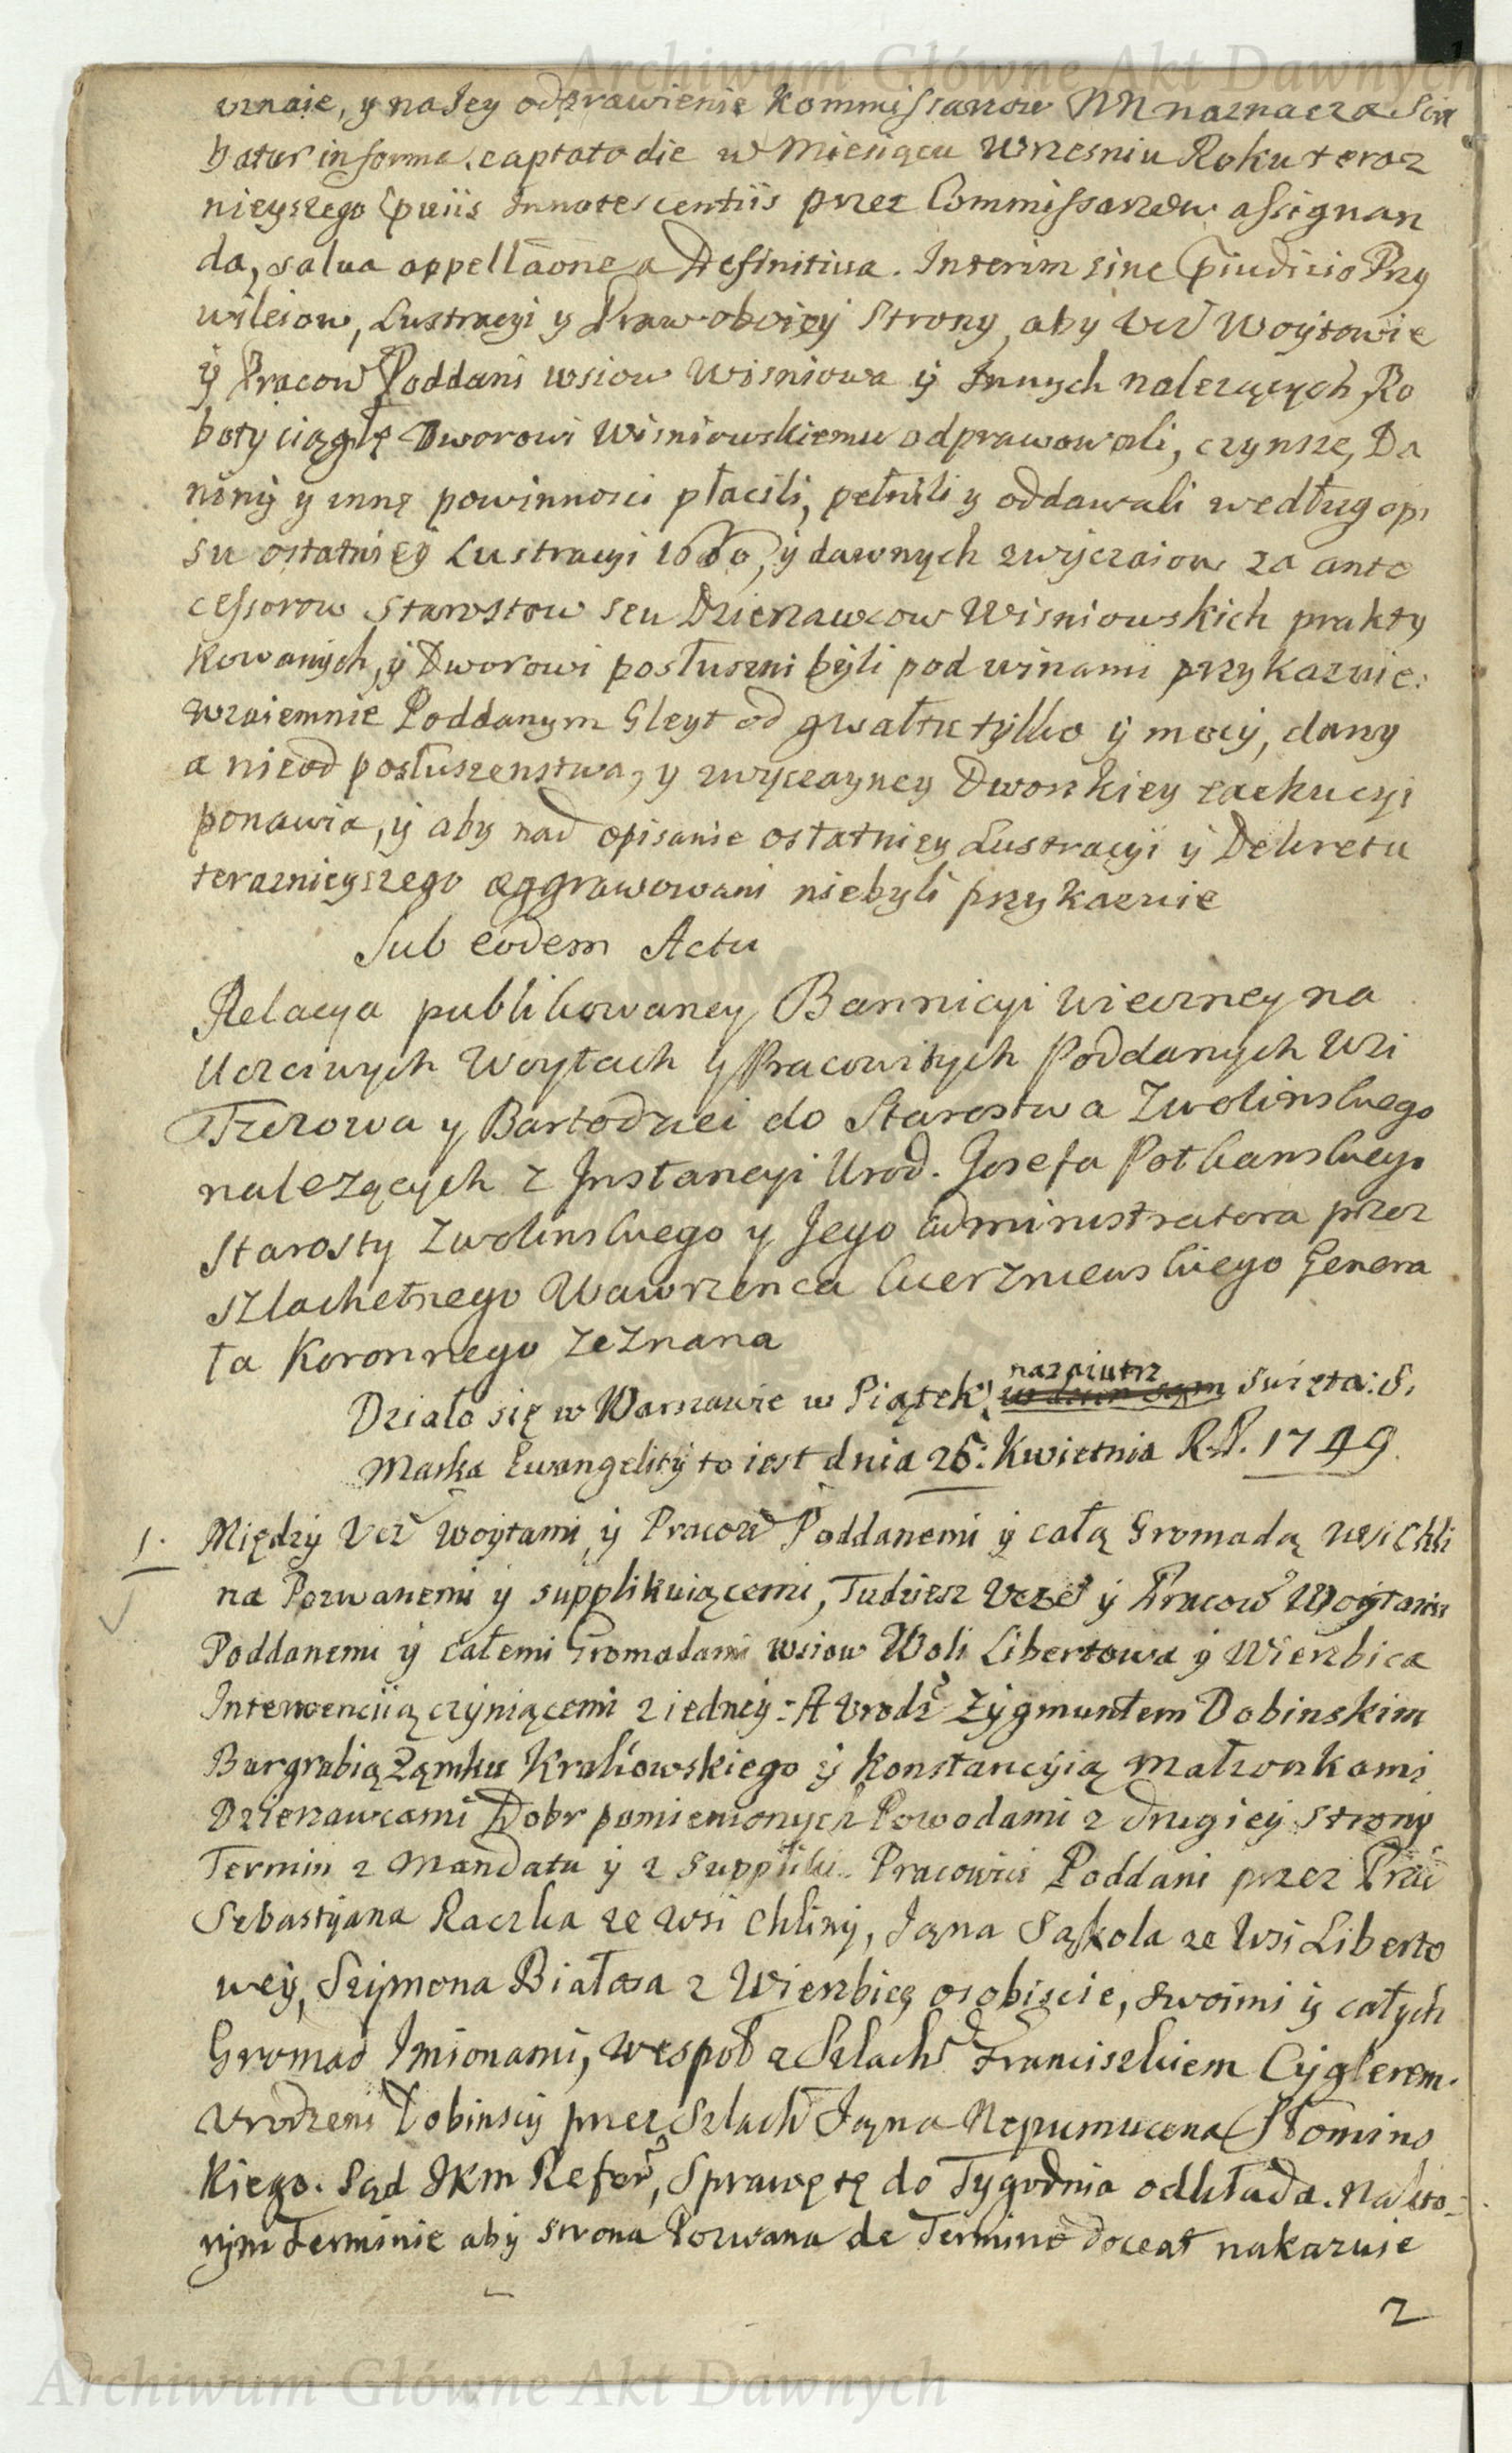 Archiwum Główne Akt Dawnych
uznaie, y na Jey odprawienie Kommissarzow NN naznacza Scri
batur in forma, captato die w Miesiącu Wrzesniu Roku teraz
nieyszego Pviis Innotescentiis przez Commissarzow assignan
da, salva appellaone a Definitiva. Interim sine Piudicio Przy
wileiow, Lustracyi y Praw oboiey Strony, aby Ucz Woytowie
y Pracow Poddani wsiow Wisniowa y Innych nalezących, Ro
boty ciągłe Dworowi Wisniowskiemu odprawowali, czynsze, Da
niny y inne powinnosci płacili, pełnili y oddawali według opi
su ostatniey Lustracyi 1660, y dawnych zwyczaiow za ante
cessorow Starostow seu Dzierzawcow Wisniowskich prakty
kowanych, y Dworowi posłuszni byli pod winami przykazuie:
Wzaiemnie Poddanym Gleyt od gwałtu tylko y mocy, dany
a nieod posłuszenstwa, y zwyczayney Dworskiey exekucyi
ponawia, y aby nad opisanie ostatniey Lustracyi y Dekretu
teraznieyszego aggrawowani niebyli przykazuie
Sub eodem Actu
Relacya publikowaney Bannicyi wieczney na
Uczciwych Woytach y Pracowitych Poddanych wsi
Tczowa y Bartodziei do Starostwa Zwolinskiego
nalezących z Instancyi Urod. Josefa Potkanskiego
Starosty Zwolinskiego y Jego Administratora przez
szlachetnego Wawrzenca Czerzniewskiego Genera
ła Koronnego zeznana
nazaiutrz
Działo się w Warszawie w Piątek, w dzien sam Swięta: S.
Marka Ewangelisty to iest dnia 25: Kwietnia R.P. 1749.
1. Między Ucz Woytami y Pracow Poddanemi y całą Gromadą wsi Chli
na Pozwanemi y supplikuiącemi, Tudziesz Ucze y Pracow Woytami
Poddanemi y całemi Gromadami wsiow Woli Libertowa y Wierzbica
Interwencyią czyniącemi z iedney: A Urodz Zygmuntem Dobinskim
Burgrabią Zamku Krakowskiego y Konstancyią Małzonkami
Dzierzawcami Dobr pomienionych Powodami z drugiey strony
Termin z Mandatu y z Suppliki. Pracowici Poddani przez Prac
Sebastyana Raczka ze wsi Chliny, Jana Sąkola ze wsi Liberto
wey, Szymona Białasa z Wierzbicy osobiscie, swoimi y całych
Gromad Imionami, wespoł z Szlach Franciszkiem Cyglerem.
Urodzeni Dobinscy przez Szlach Jana Nepumucena Słomins
kiego. Sąd JKM Refer, Sprawę tę do Tygodnia odkłada. Na kto=
rym Terminie aby strona Pozwana de Termino doceat nakazuie
2
Archiwum Główne Akt Dawnych